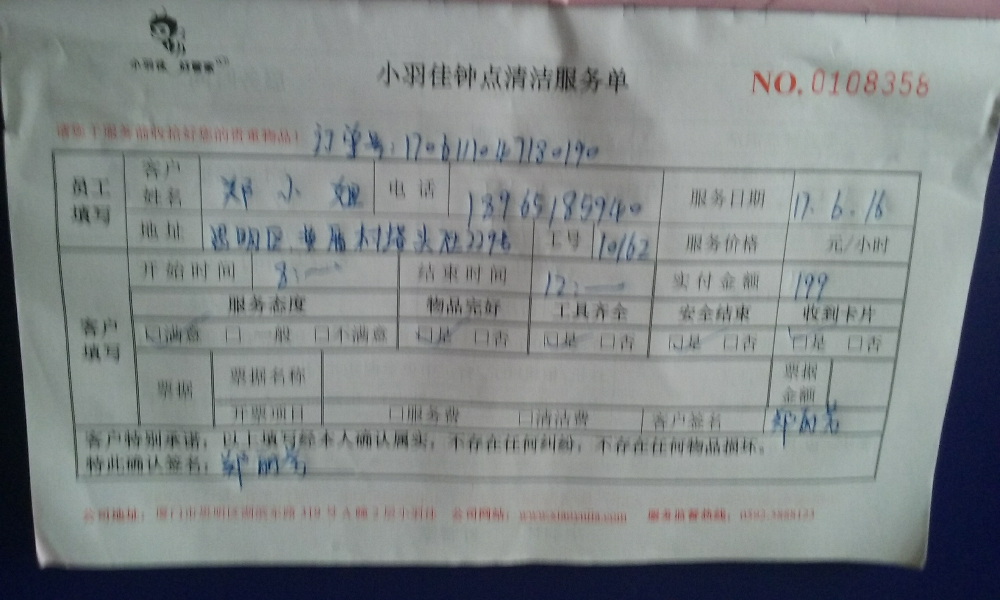 小羽佳 好管家
小羽佳钟点清洁服务单
NO. 0108358
请您于服务前收拾好您的贵重物品！
订单号：
员工填写
客户姓名 郑小姐 电话 18965185940 服务日期 17.6.16
地址 思明区 村 社229号 工号 10162 服务价格 元/小时
客户填写
开始时间 8:— 结束时间 12:— 实付金额 199
服务态度 物品完好 工具齐全 安全结束 收到卡片
口满意 口一般 口不满意 口是 口否 口是 口否 口是 口否 口是 口否
票据 票据名称 票据金额
开票项目 口服务费 口清洁费 客户签名 郑丽芳
客户特别承诺：以上填写经本人确认属实，不存在任何纠纷，不存在任何物品损坏。
特此确认签名：郑丽芳
公司地址：厦门市思明区湖滨东路319号A幢2层小羽佳 公司网站：www.xiaoyujia.com 服务监督热线：